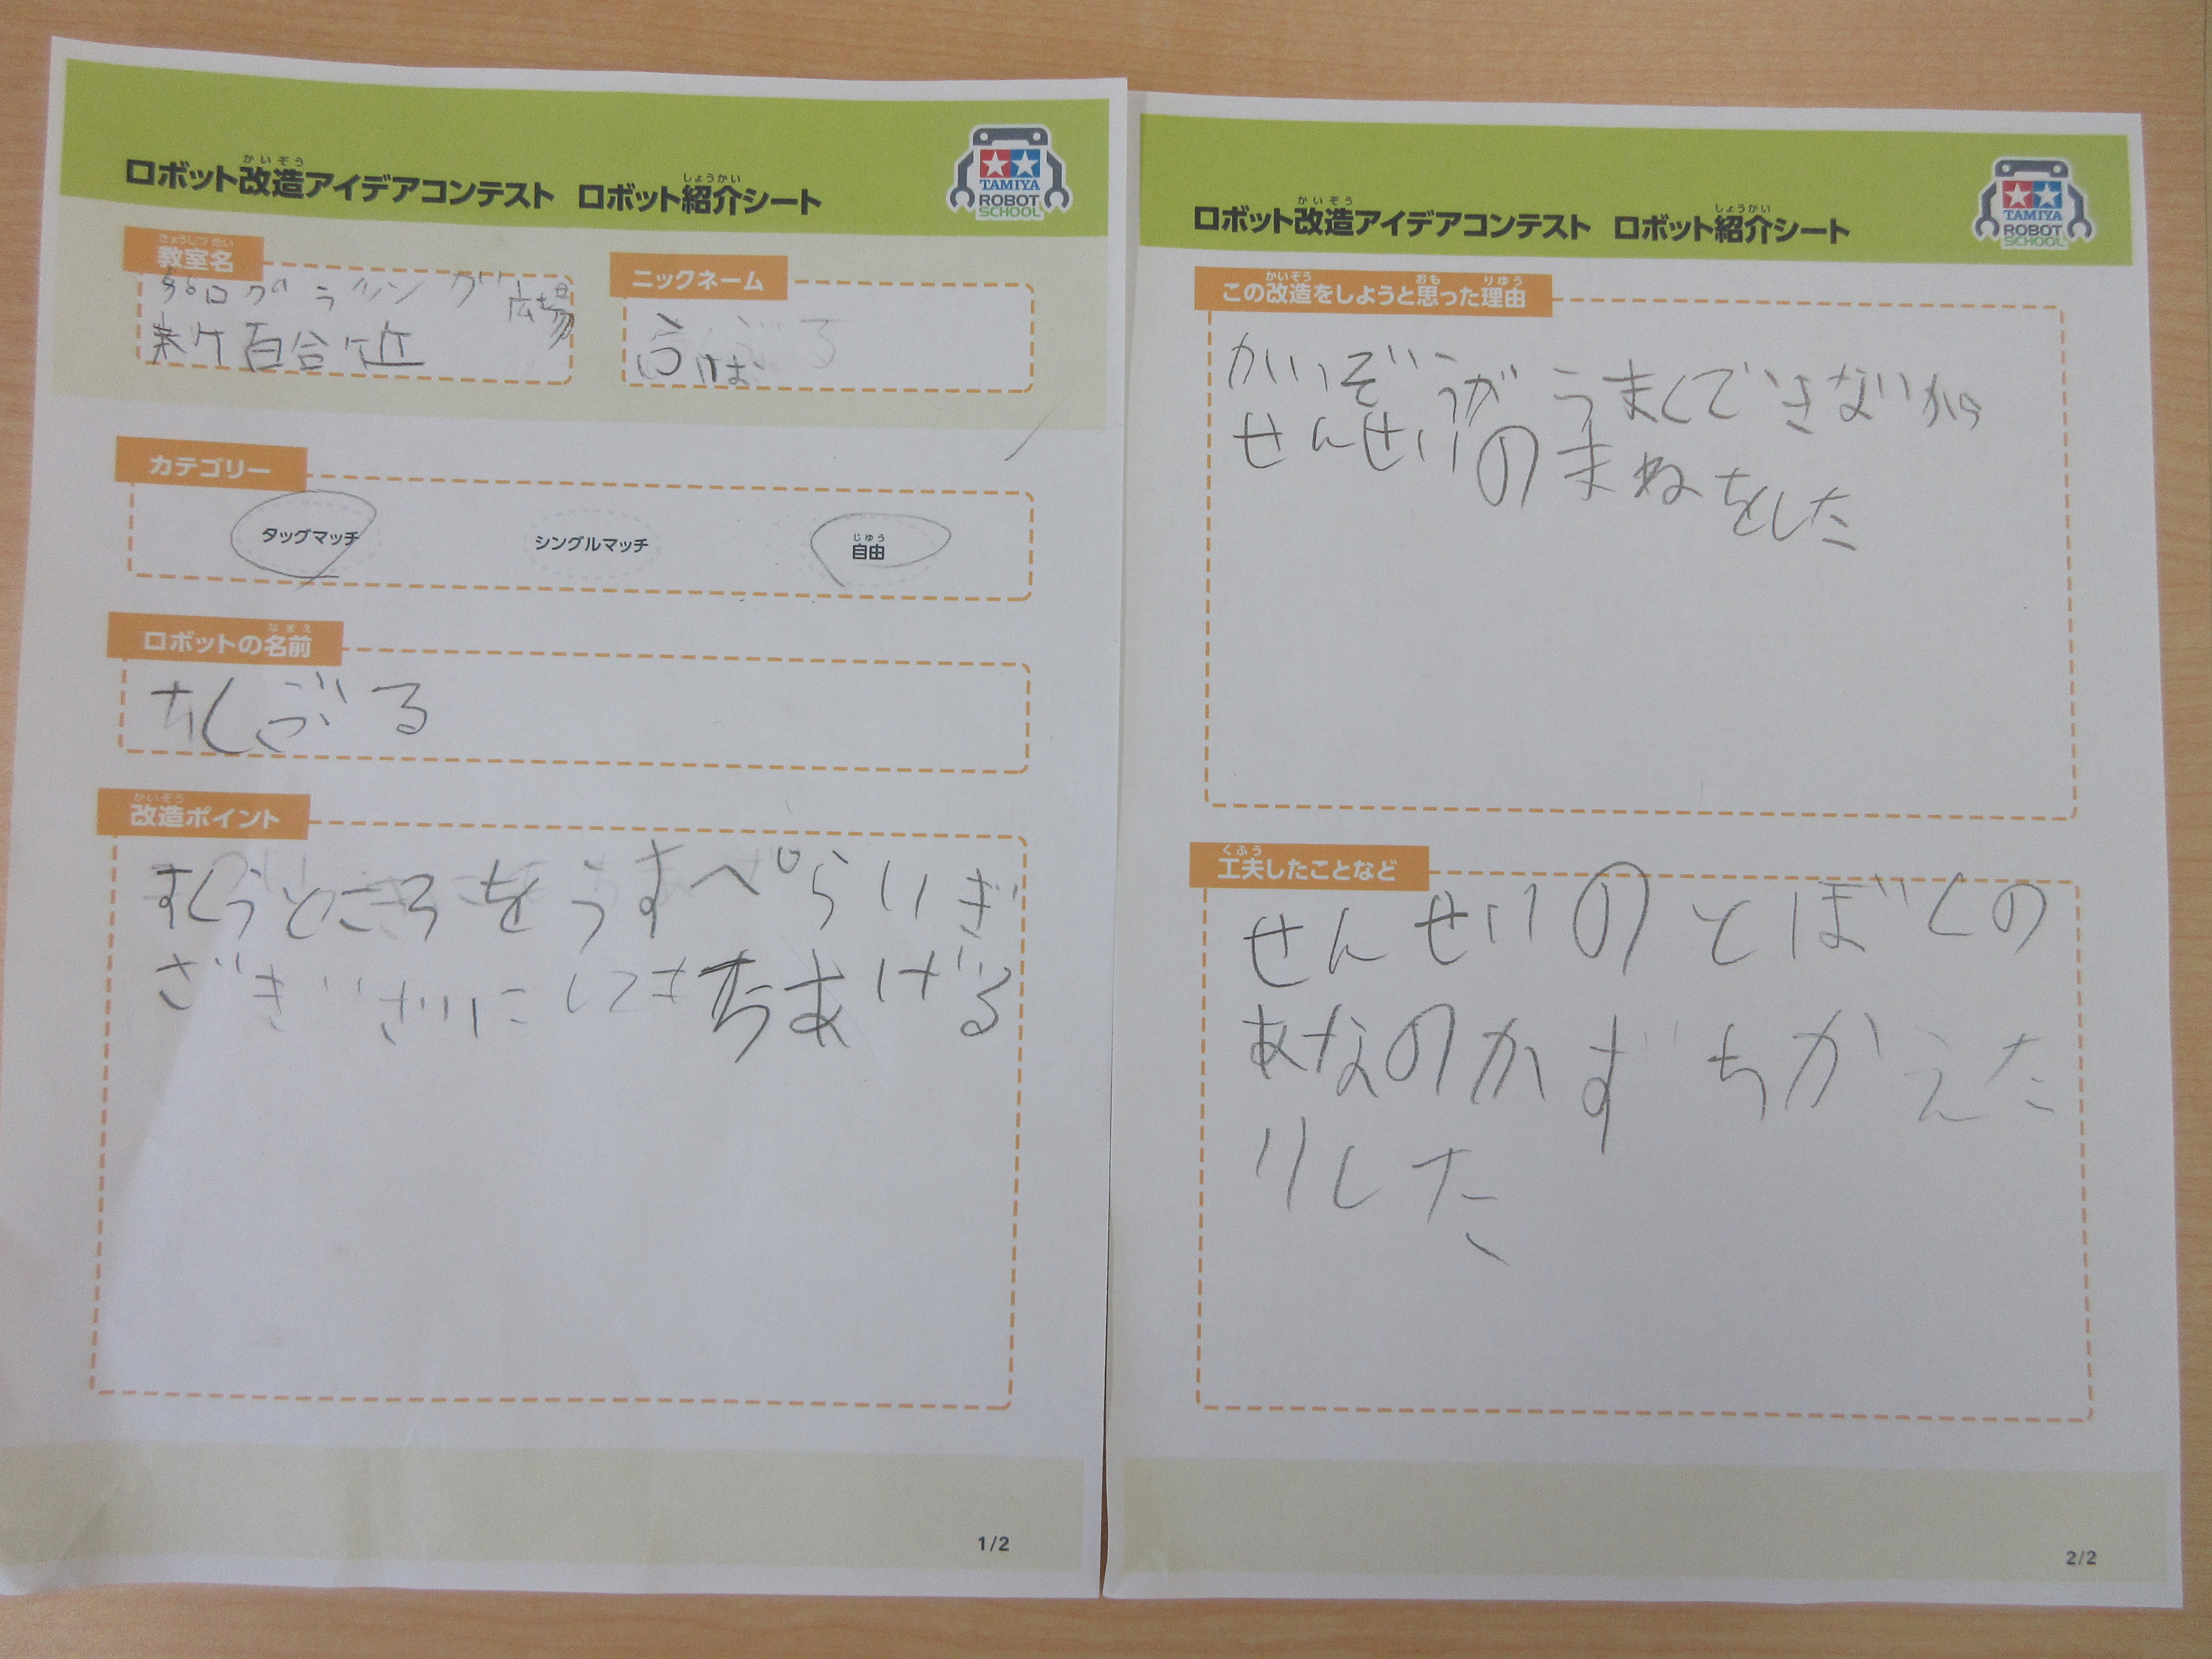 ロボット改造アイデアコンテスト ロボット紹介シート
かいぞう
しょうかい
TAMIYA
ROBOT
SCHOOL
きょうしつめい
教室名
プログラミング広場
新百合ヶ丘
ニックネーム
カテゴリー
タッグマッチ
シングルマッチ
じゆう
自由
ロボットの名前
なまえ
かいぞう
改造ポイント
すくうところをうすぺらいぎ
ざぎざにしてもちあげる
1/2
ロボット改造アイデアコンテスト ロボット紹介シート
かいぞう
しょうかい
TAMIYA
ROBOT
SCHOOL
かいぞう おも りゆう
この改造をしようと思った理由
かいぞうがうまくできないから
せんせいのまねをした
くふう
工夫したことなど
せんせいのとぼくの
あなのかずちがえた
りした
2/2